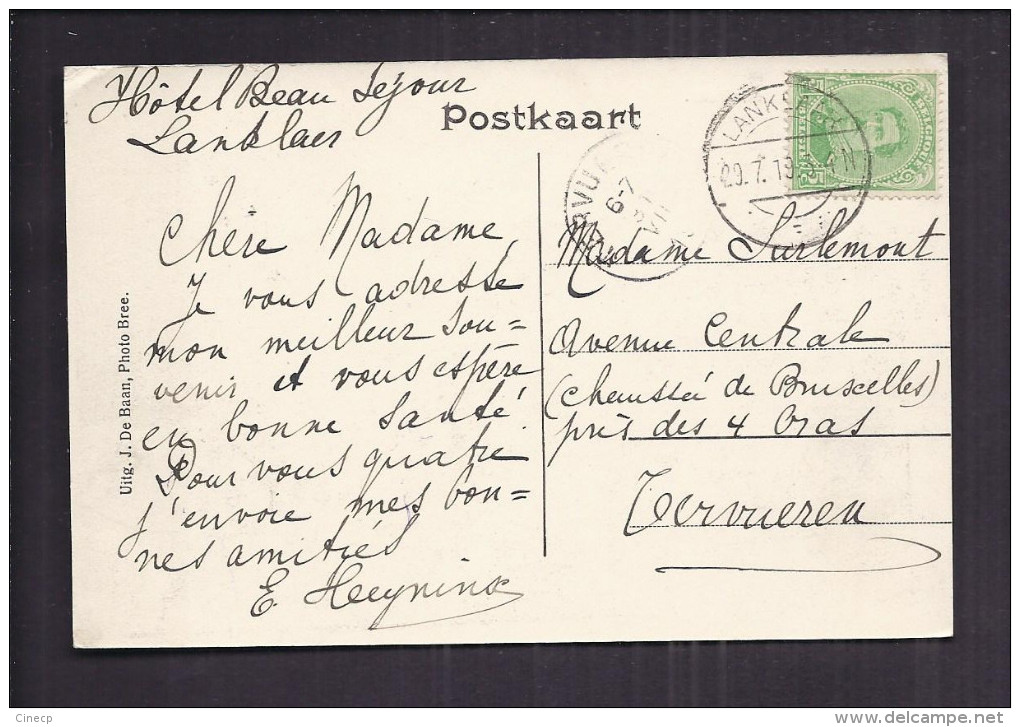 Hôtel Beau Séjour
Lanklaer
Postkaart
Chère Madame,
Je vous adresse
mon meilleur sou=
venir et vous espère
en bonne santé.
Pour vous quatre
j'envoie mes bon=
nes amitiés
E. Heyninx
Uitg. J. De Baan, Photo Bree.
BELGIQUE
29.7.19 3-4 N
6-7
Madame Surlemont
Avenue Centrale
(chaussée de Bruxelles)
près des 4 bras
Tervueren
Cinecp
www.delcampe.net